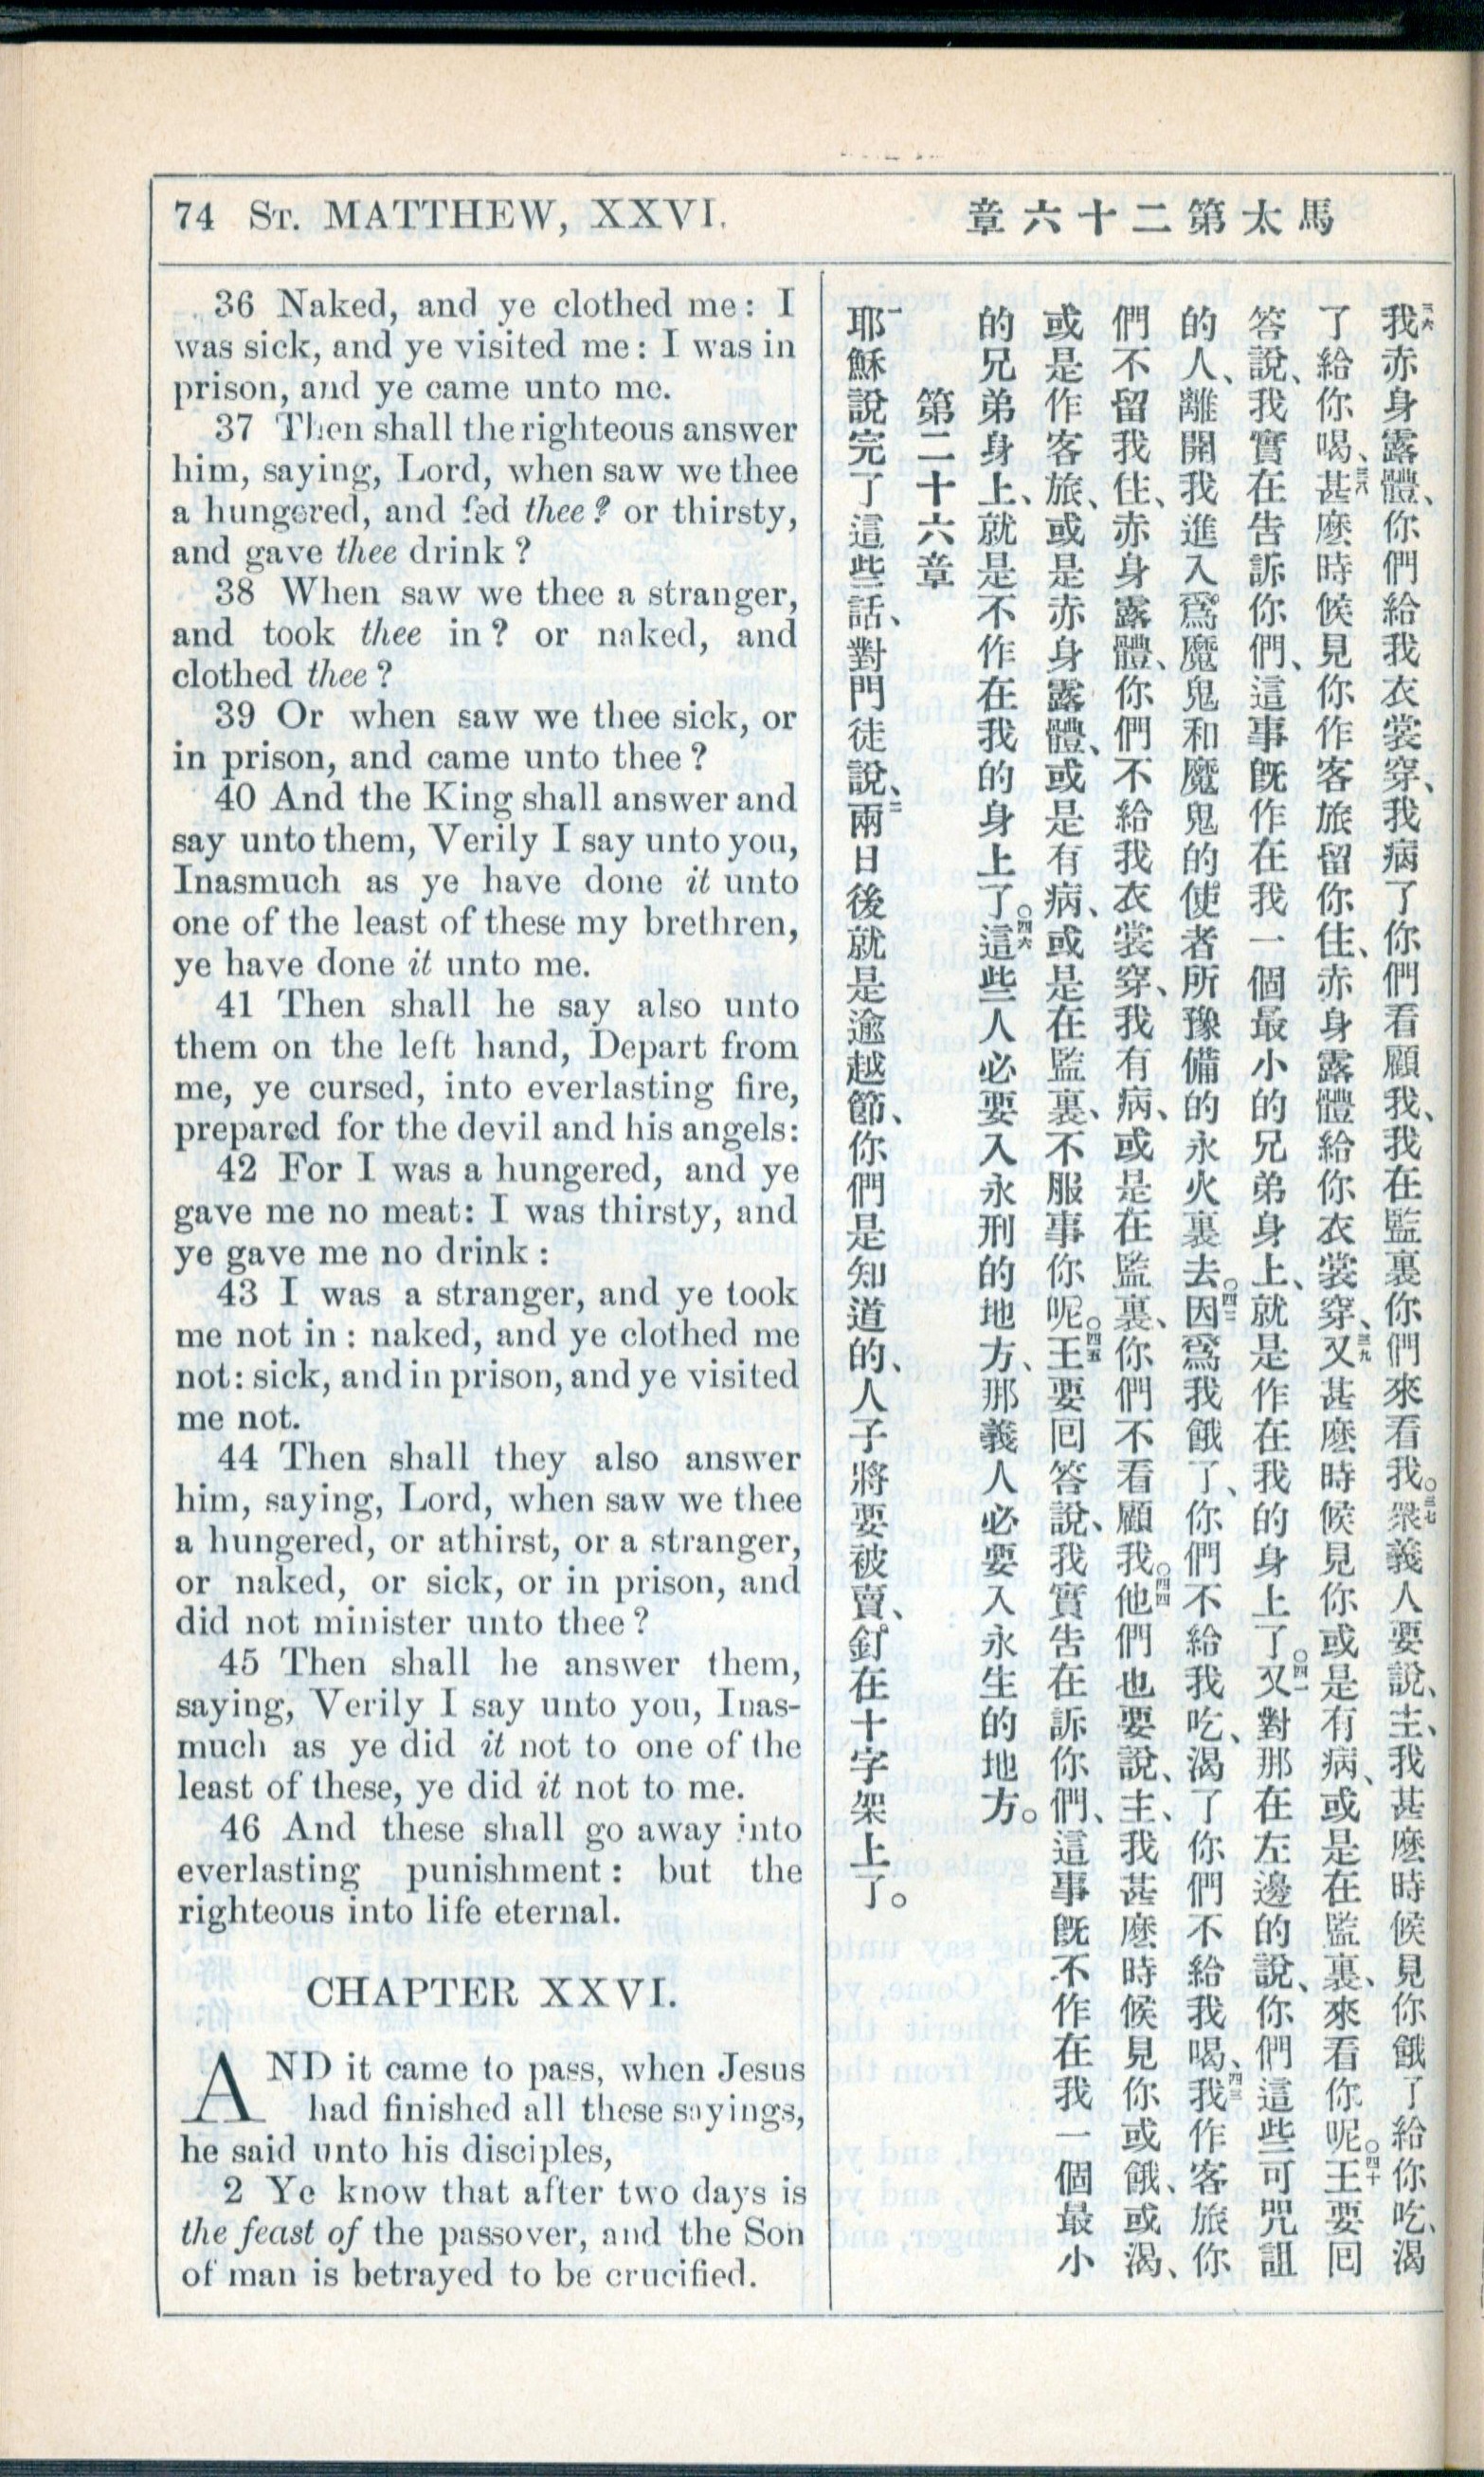 74 St. MATTHEW, XXVI.
馬太第二十六章
36 Naked, and ye clothed me: I
was sick, and ye visited me: I was in
prison, and ye came unto me.
37 Then shall the righteous answer
him, saying, Lord, when saw we thee
a hungered, and fed thee? or thirsty,
and gave thee drink?
38 When saw we thee a stranger,
and took thee in? or naked, and
clothed thee?
39 Or when saw we thee sick, or
in prison, and came unto thee?
40 And the King shall answer and
say unto them, Verily I say unto you,
Inasmuch as ye have done it unto
one of the least of these my brethren,
ye have done it unto me.
41 Then shall he say also unto
them on the left hand, Depart from
me, ye cursed, into everlasting fire,
prepared for the devil and his angels:
42 For I was a hungered, and ye
gave me no meat: I was thirsty, and
ye gave me no drink:
43 I was a stranger, and ye took
me not in: naked, and ye clothed me
not: sick, and in prison, and ye visited
me not.
44 Then shall they also answer
him, saying, Lord, when saw we thee
a hungered, or athirst, or a stranger,
or naked, or sick, or in prison, and
did not minister unto thee?
45 Then shall he answer them,
saying, Verily I say unto you, Inas-
much as ye did it not to one of the
least of these, ye did it not to me.
46 And these shall go away into
everlasting punishment: but the
righteous into life eternal.
CHAPTER XXVI.
AND it came to pass, when Jesus
had finished all these sayings,
he said unto his disciples,
2 Ye know that after two days is
the feast of the passover, and the Son
of man is betrayed to be crucified.
三六我赤身露體、你們給我衣裳穿、我病了你們看顧我、我在監裏你們來看我。三七衆義人要說、主、我甚麽時候見你餓了給你吃、渴
了給你喝、三八甚麽時候見你作客旅留你住、赤身露體給你衣裳穿、三九又甚麽時候見你或是有病、或是在監裏、來看你呢。四十王要回
答說、我實在告訴你們、這事旣作在我一個最小的兄弟身上、就是作在我的身上了。四一又對那在左邊的說、你們這些可咒詛
的人、離開我進入爲魔鬼和魔鬼的使者所豫備的永火裏去。四二因爲我餓了、你們不給我吃、渴了你們不給我喝、四三我作客旅你
們不留我住、赤身露體、你們不給我衣裳穿、我有病、或是在監裏、你們不看顧我。四四他們也要說、主、我甚麽時候見你或餓、或渴、
或是作客旅、或是赤身露體、或是有病、或是在監裏、不服事你呢。四五王要回答說、我實告在訴你們、這事旣不作在我一個最小
的兄弟身上、就是不作在我的身上了。四六這些人必要入永刑的地方、那義人必要入永生的地方。
第二十六章
一耶穌說完了這些話、對門徒說、二兩日後就是逾越節、你們是知道的、人子將要被賣、釘在十字架上了。